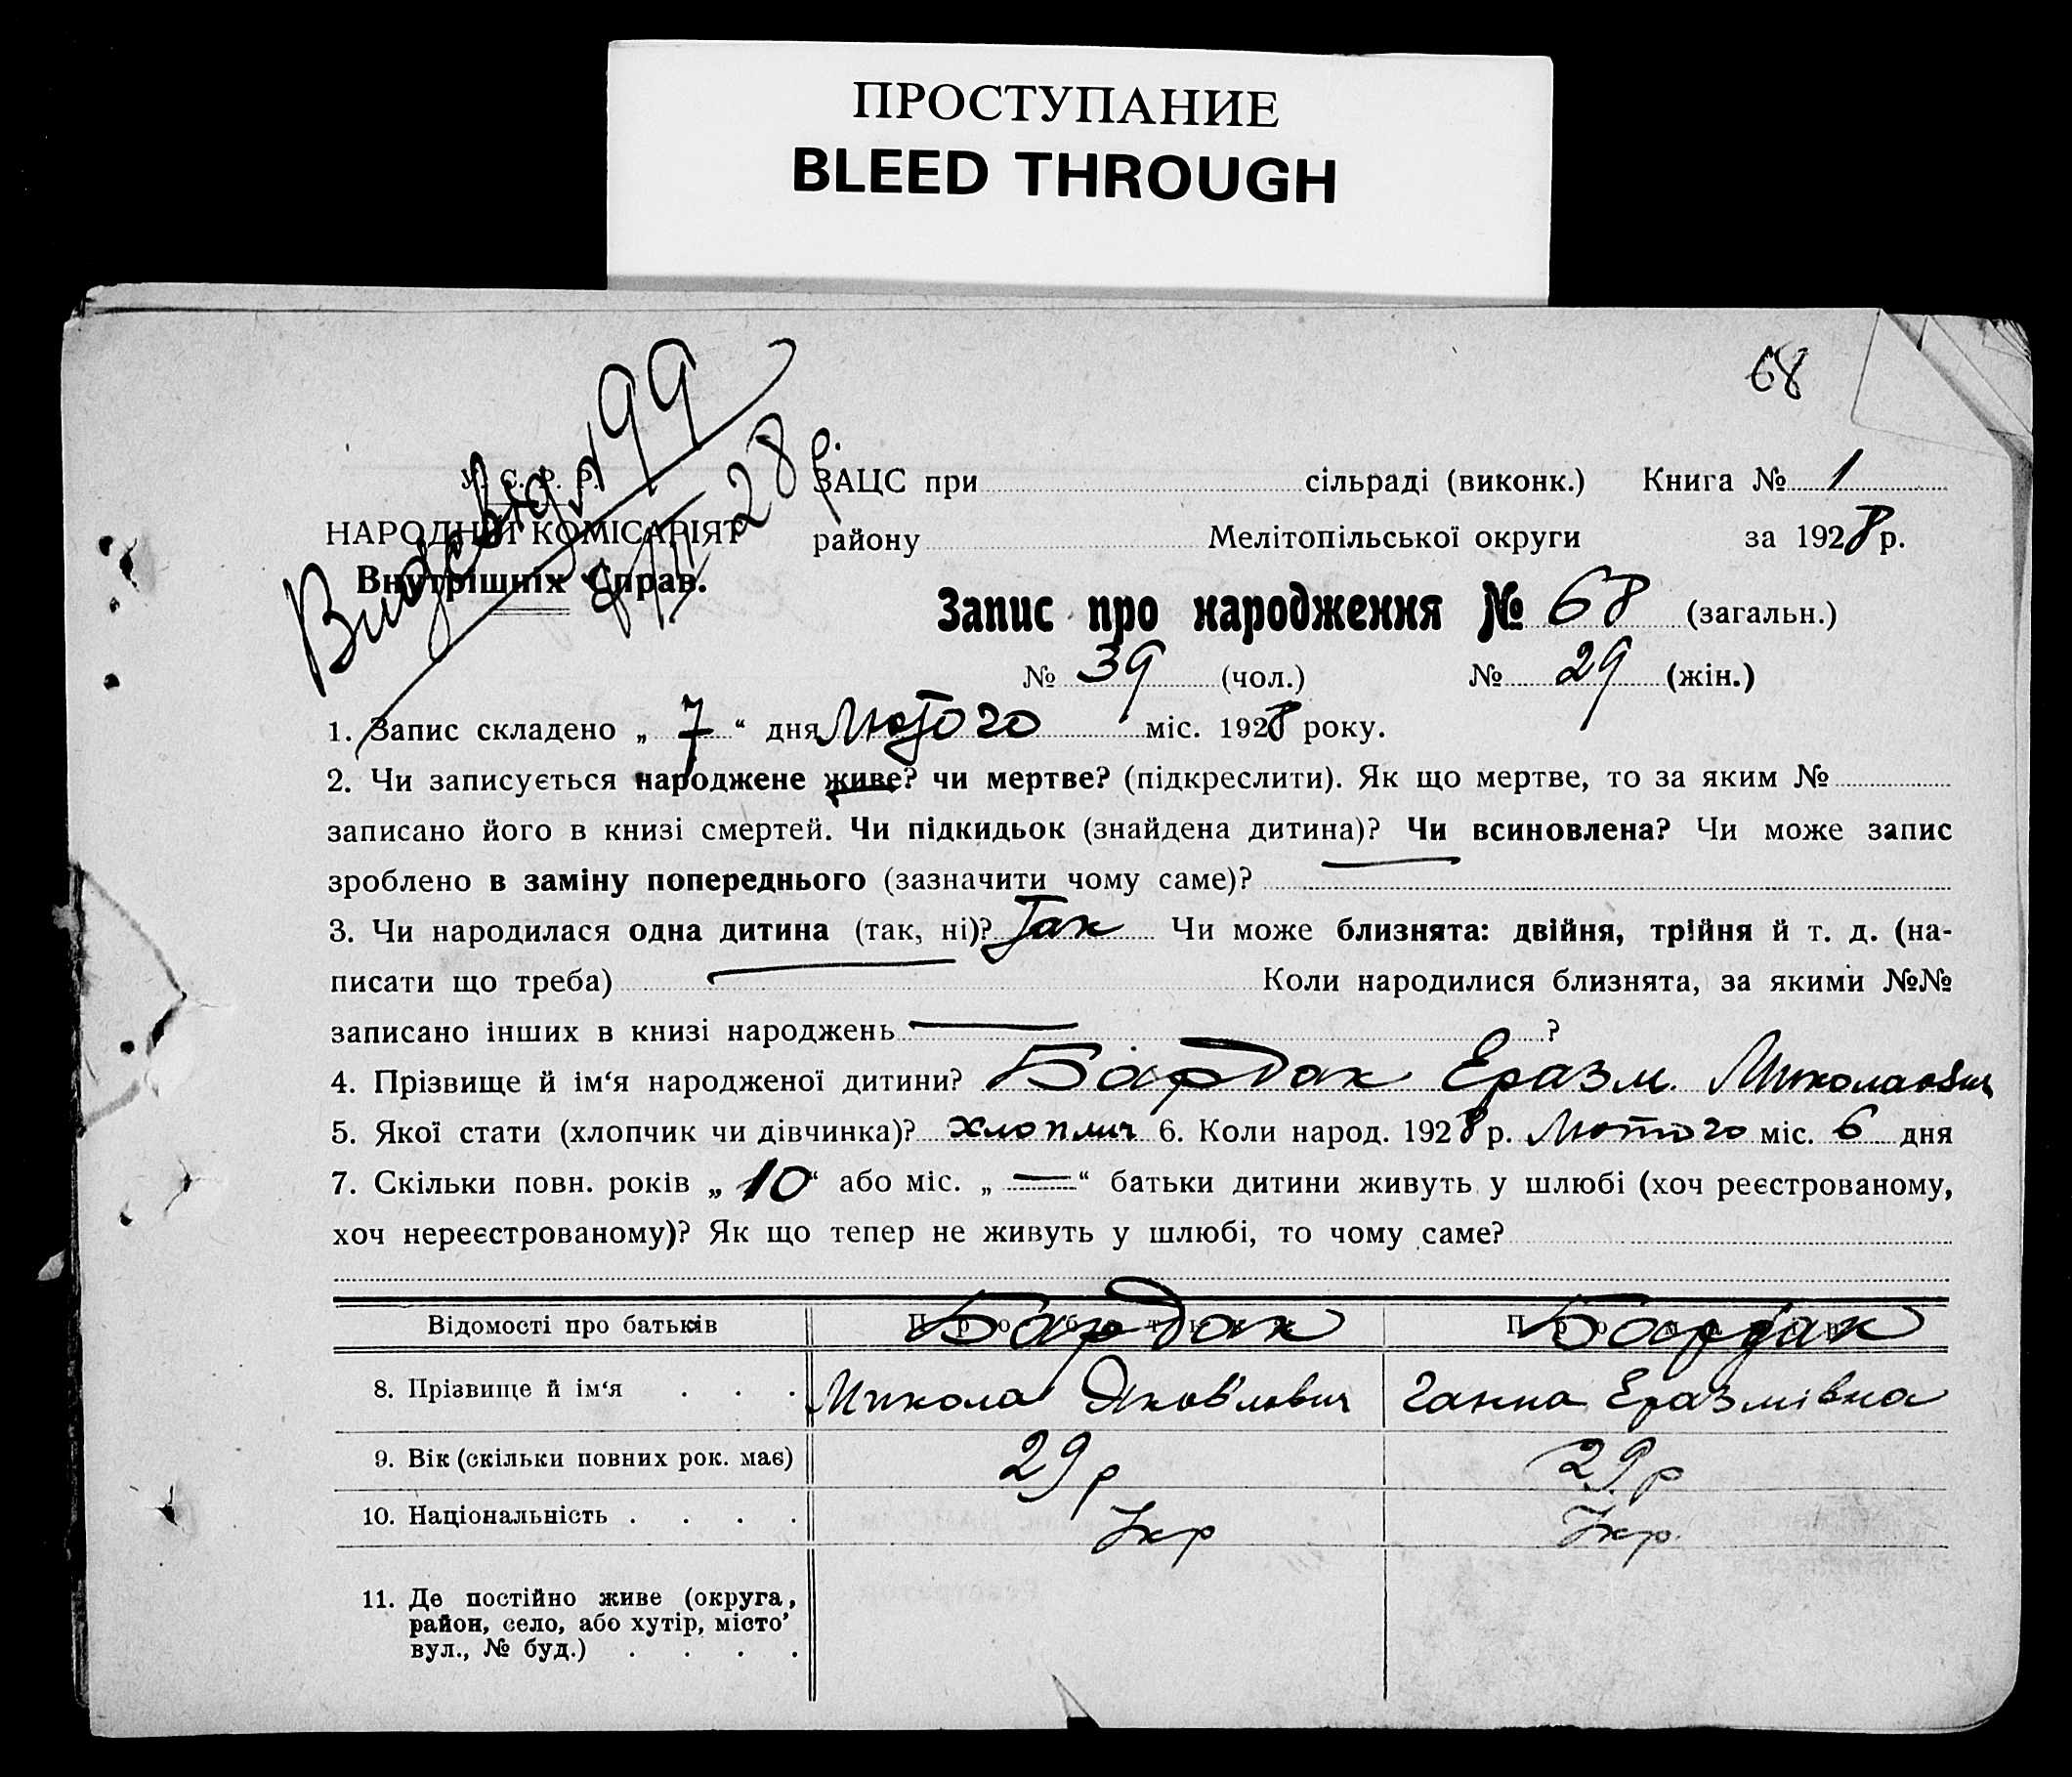 ПРОСТУПАНИЕ
BLEED THROUGH
68
Видав гд № 99
8/II 28 р.
У. С. Р. Р.
НАРОДНІЙ КОМІСАРІЯТ
Внутрішніх Справ.
ЗАЦС при сільраді (виконк.) Книга № 1
району Мелітопільської округи за 1928 р.
Запис про народження № 68 (загальн.)
№ 39 (чол.) № 29 (жін.)
1. Запис складено „ 7 “ дня Лютого міс. 1928 року.
2. Чи записується народжене живе? чи мертве? (підкреслити). Як що мертве, то за яким №
записано його в книзі смертей. Чи підкидьок (знайдена дитина)? Чи всиновлена? Чи може запис
зроблено в заміну попереднього (зазначити чому саме)?
3. Чи народилася одна дитина (так, ні)? Так Чи може близнята: двійня, трійня й т. д. (на-
писати що треба) — Коли народилися близнята, за якими №№
записано інших в книзі народжень — ?
4. Прізвище й ім‘я народженої дитини? Бардак Еразм Миколаович
5. Якої стати (хлопчик чи дівчинка)? хлопчич 6. Коли народ. 1928 р. Лютого міс. 6 дня
7. Скільки повн. років „ 10 “ або міс. „ — “ батьки дитини живуть у шлюбі (хоч реєстрованому,
хоч нереєстрованому)? Як що тепер не живуть у шлюбі, то чому саме?
Відомості про батьків Про батька Бардак Про матір Бардак
8. Прізвище й ім‘я . . . Микола Яковлович Ганна Еразмівна
9. Вік (скільки повних рок. має) 29 р 29 р
10. Національність . . . . Укр Укр
11. Де постійно живе (округа,
район, село, або хутір, місто’
вул., № буд.) . . . .